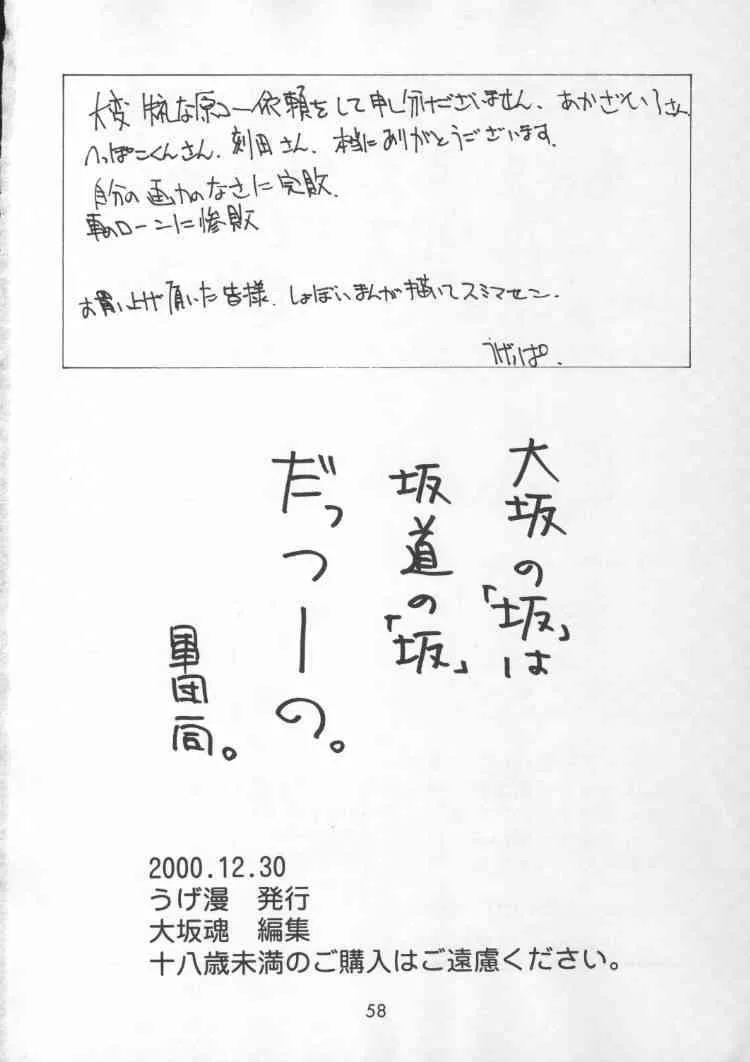 大変 な原コー依頼をして申し分けございません、あかざといさん
へっぽこくんさん、刻田さん、本当にありがとうございます。
自分の画力のなさに完敗.
車のローンに惨敗
お買い上げ頂いた皆様、しょぼいまんが描いてスミマセン.
うげっぱ.
大坂の「坂」は
坂道の「坂」
だっつーの。
軍団一同。
2000.12.30
うげ漫　発行
大坂魂　編集
十八歳未満のご購入はご遠慮ください。
58